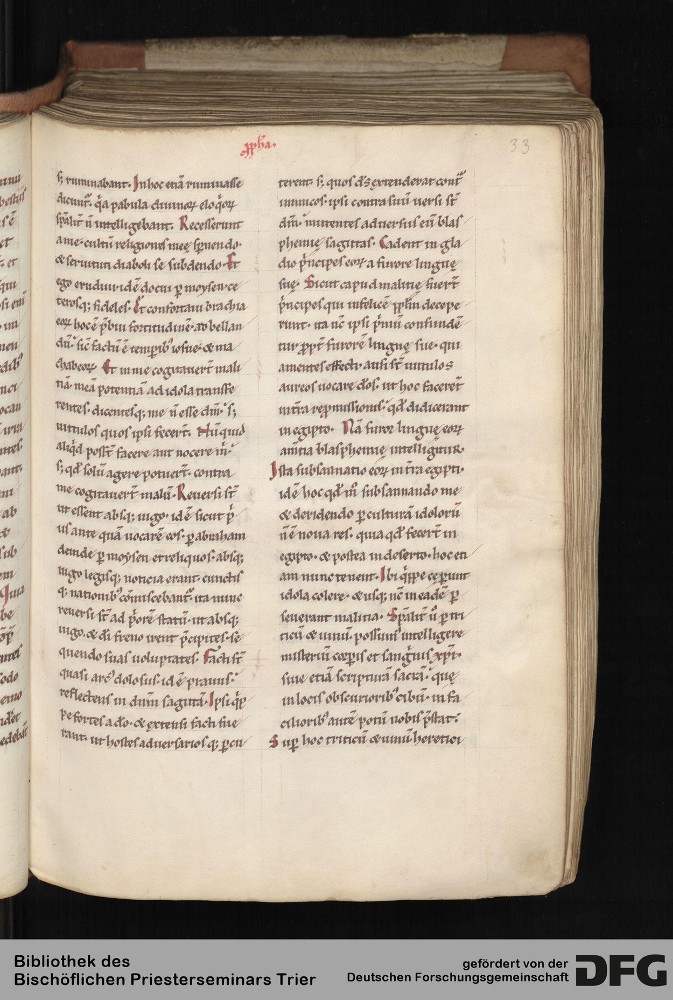 pph̄a.
33
s; ruminabant. In hoc etiā ruminasse
dicunt᷑. q̇a pabula diuinoꝝ eloq̇oꝝ
sp̄alit᷑ n̄ intelligebant. Recesserunt
a me. cultū religionis meę sp̄nendo.
& seruituti diaboli se subdendo. Et
ego erudiui. idē docui p̱ moysen. ce
terosq; fideles. Et confortaui brachia
eoꝝ hoc ē p̄bui fortitudinē. ad bellan
dū. sic̄ factū ē temporib᷒ iosue. & ma
chabeoꝝ. Et in me cogitauer̄t mali
tiā. meā potentiā ad idola transfe
rentes. dicentesq; me n̄ esse dm̄. s;
uitulos quos ipsi fecer̄t. Nūquid
aliq̇d poss̄t facere aut nocere m̄.
s; qd̄ solū agere potuer̄t. contra
me cogitauer̄t malū. Reuersi s̄t
ut essent absq; iugo. id ē sicut p̄
us ante quā uocarē eos. p̱ abraham
deinde p̱ moysen et reliquos. absq;
iugo legisq; noticia erant. cunctis
q; nationib᷒ cōmiscebant᷑. ita nunc
reuersi s̄t ad p̄orē statū. ut absq;
iugo. & di freno irent p̄cipites. se
quendo suas uoluptates. Facti s̄t
quasi arc᷒ dolosus. id ē prauus.
reflectens in dn̄m sagittā. Ipsi q̄p̄
pe fortes a do. & extensi facti fue
rant. ut hostes aduersariosq; p̱cu
terent. s; quos d̄s extenderat cont᷑
inimicos. ipsi contra suū uersi s̄t
dm̄. mittentes aduersus eū blas
phemię sagittas. Cadent in gla
dio p̄ncipes eoꝝ a furore linguę
suę. Sicut capud malitię fuer̄t
p̄ncipes qui infelicē pp̄lm decepe
runt. ita nc̄ ipsi p̄mū confundē
tur ꝓpt᷑ furorē linguę suę. qui
amentes effecti. ausi s̄t uitulos
aureos uocare d̄os. ut hoc faceret̄
in t̄ra repmissionis. qd̄ didicerant
in egipto. Nā furor linguę eoꝝ
amica blasphemię intelligit᷑.
Ista subsannatio eoꝝ in t̄ra egipti.
idē hoc qd̄ m̄ subsannando me
& deridendo p̱ culturā idolorū
n̄ ē noua res. quia qd̄ fecer̄t in
egipto. & postea in deserto. hoc eti
am nunc tenent. Ibi q̄ppe cęp̱unt
idola colere. & usq; nc̄ in eadē p̱
seuerant malitia. Sp̄alit᷑ ū p̱ tri
ticū & uinū. possum᷒ intelligere
misteriū corp̱is et sanguis xp̄i.
siue etiā scripturā sacrā. quę
in locis obscuriorib᷒ cibū. in fa
cilioribus autē potū nobis p̄stat.
Sup̱ hoc triticū & uinū heretici
Bibliothek des
Bischöflichen Priesterseminars Trier
gefördert von der
Deutschen Forschungsgemeinschaft
DFG